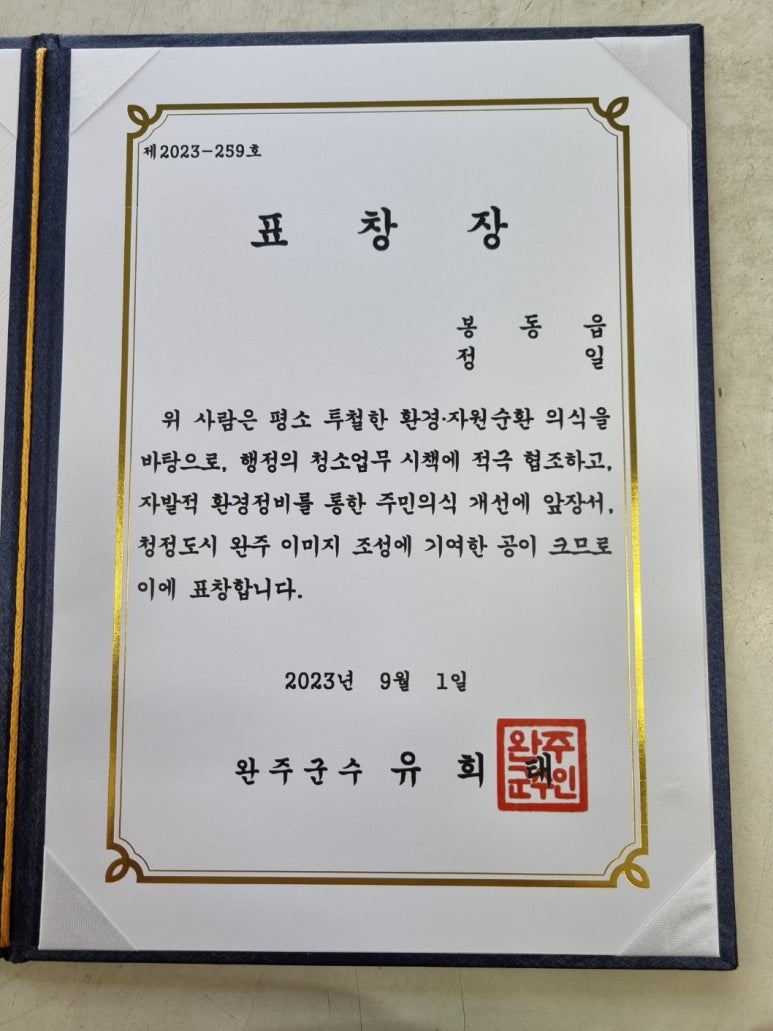 제2023-259호
표 창 장
봉 동 읍
정 일
위 사람은 평소 투철한 환경·자원순환 의식을
바탕으로, 행정의 청소업무 시책에 적극 협조하고,
자발적 환경정비를 통한 주민의식 개선에 앞장서,
청정도시 완주 이미지 조성에 기여한 공이 크므로
이에 표창합니다.
2023년 9월 1일
완주군수 유 희 태
완주
군수인